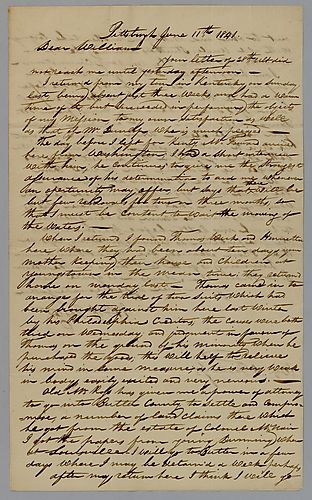 Pittsbgh June 11th 1841.
Dear William
your letter of 5th Ult did
not reach me until yesterday afternoon —
I returnd from my tour in Kentucky on Sunday
last, being absent near three Weeks and had a Warm
time of it but succeeded in performing the objects
of my Mission to my own satisfaction as Well
as that of Mr. who is much pleased —
The day before I left for Kenty Mr arrived
here from Washington, I had a short interview
With him, he Continues to give me the strongest
assurances of his determination to aid me when
an opertunity may offer but says that there Will be
but few removals for two or three months, so
that I must be Constent to Wait the moving of
the Waters. —
When I returnd I found Thomas and
here Where they had been about ten days, your
mother keeping their house and Children at
youngstown in the mean time, they returnd
home on monday last — Thomas came in to
arrange for the trial of two suits Which had
been brought against him here last Winter
by his Philadelphia Creditors, the causes were both
tried on Wednesday and judgment in favour of
thomas on the ground of his minority When he
purchased the goods, this Will help to relieve
his mind in some measure, as he is very Weak
in body, easily excited and very nervous. —
Old Mr. Ross has given me a power of attorney
to go into Butler County to settle and Compro-
mise a number of Land Claims there Which
he got from the estate of Colonel McNair
I got the papers from young Dunning When
at Louisville. I will go to Butler in a few
days Where I may be detaind a Week, perhaps
after my return here I think I Will go